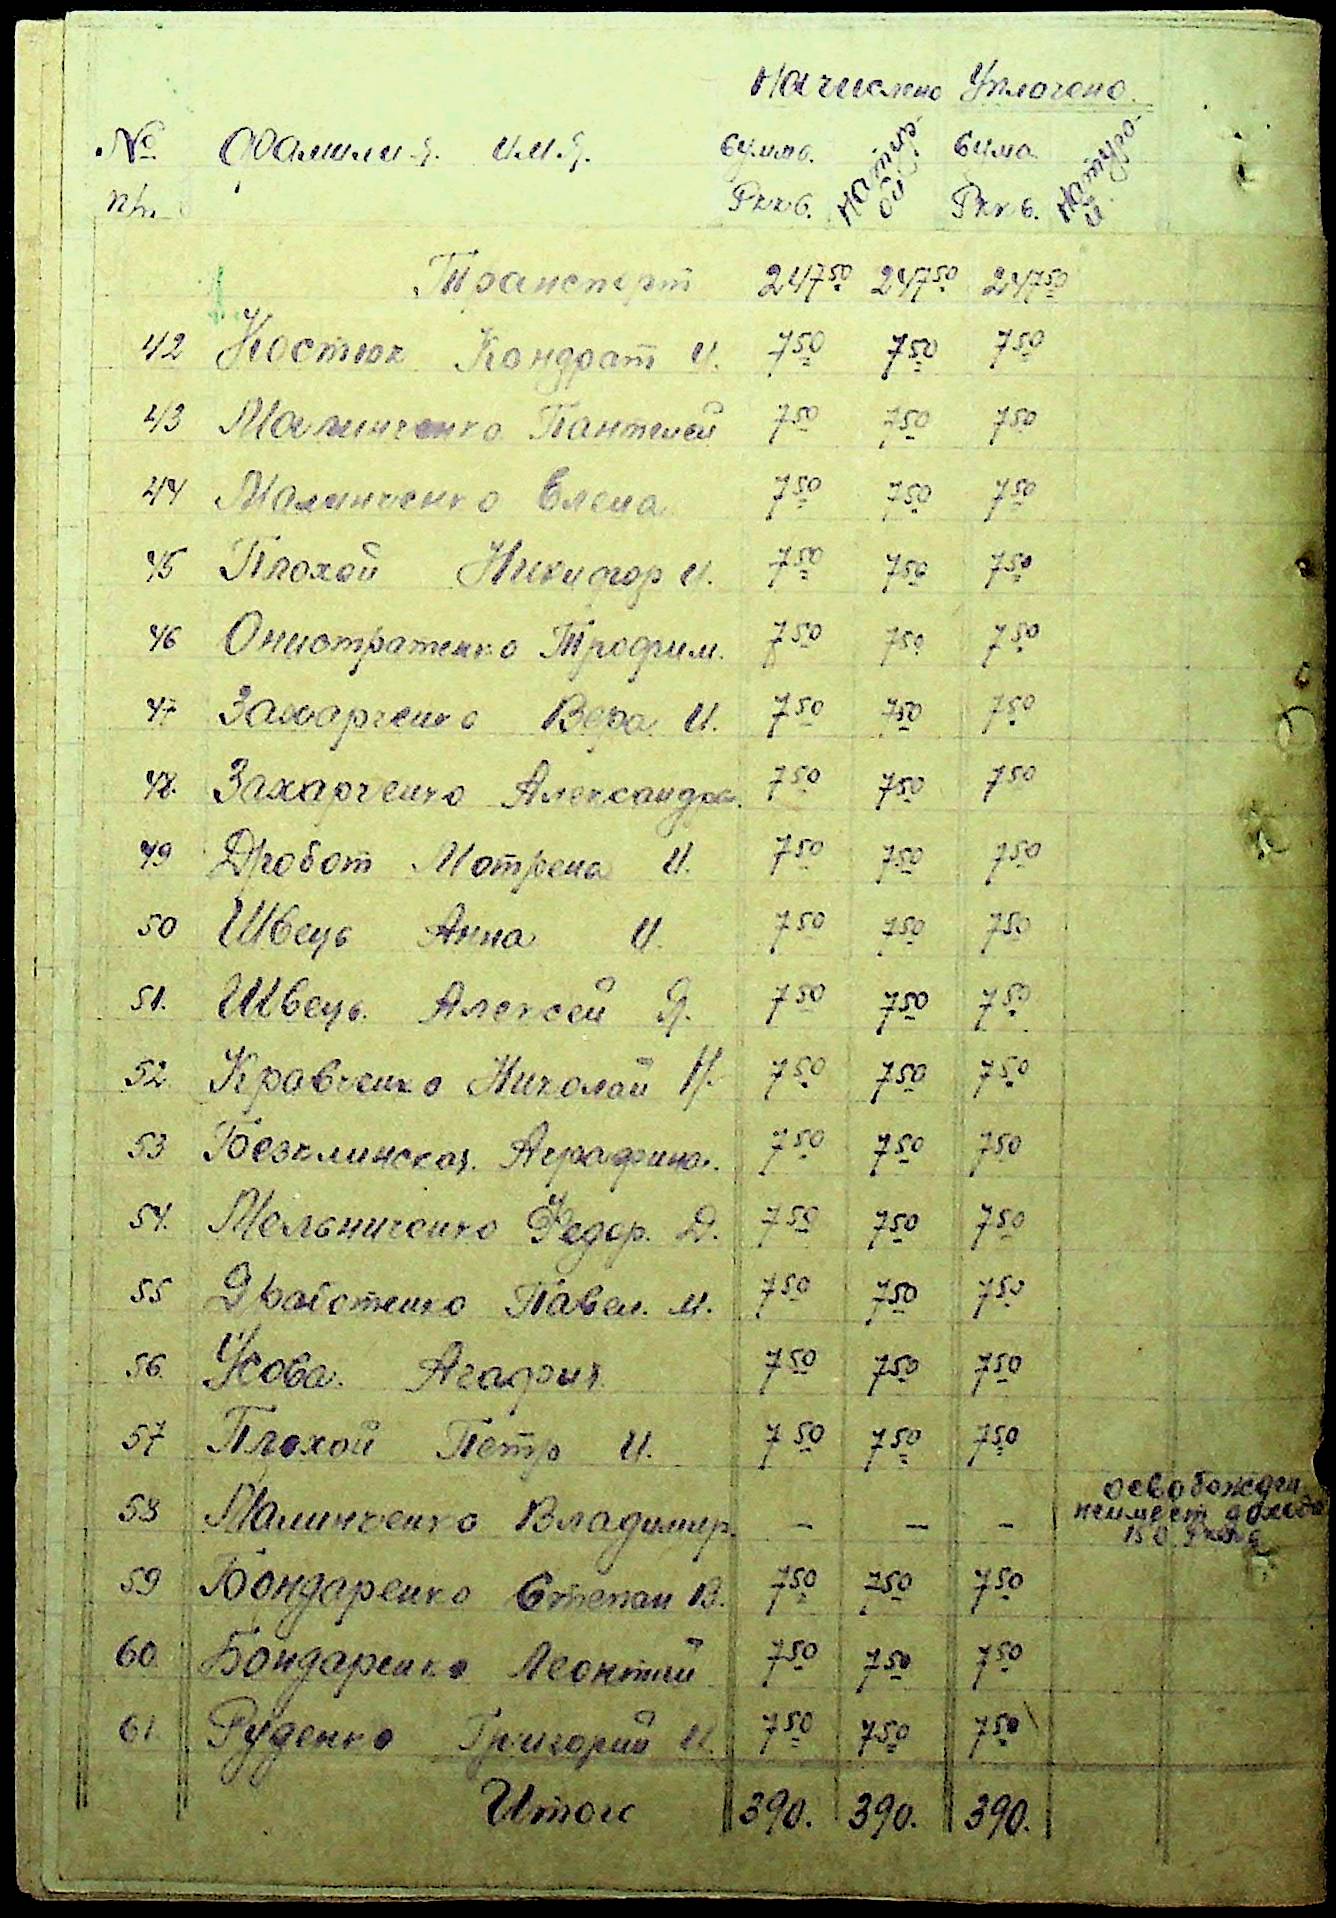 Начислено Уплочено
№ Фамилия. имя. Сумма. Натурой Сума Натурой
п/п. Ркк6. Ркк6.
Транспорт 247 50 247 50 247 50
42 Костюк Кондрат И. 7 50 7 50 7 50
43 Малинченко Пантелей 7 50 7 50 7 50
44 Малинченко Елена 7 50 7 50 7 50
45 Плохой Никифор И. 7 50 7 50 7 50
46 Онистратенко Трофим. 7 50 7 50 7 50
47 Захарченко Вера И. 7 50 7 50 7 50
48. Захарченко Александра. 7 50 7 50 7 50
49 Дробот Мотрена И. 7 50 7 50 7 50
50 Швець Анна И. 7 50 7 50 7 50
51. Швець. Алексей Я. 7 50 7 50 7 50
52. Кравченко Николай Н. 7 50 7 50 7 50
53 Безклинская. Аграфина. 7 50 7 50 7 50
54. Мельниченко Федор. Д. 7 50 7 50 7 50
55 Дработенко Павел. М. 7 50 7 50 7 50
56. Усова. Агафия 7 50 7 50 7 50
57 Плохой Петр И. 7 50 7 50 7 50
58 Малинченко Владимир. – – – освобожден
неимеет дохода
150
59 Бондаренко Степан В. 7 50 7 50 7 50
60. Бондаренко Леонтий 7 50 7 50 7 50
61. Руденко Григорий И. 7 50 7 50 7 50
Итого 390. 390. 390.